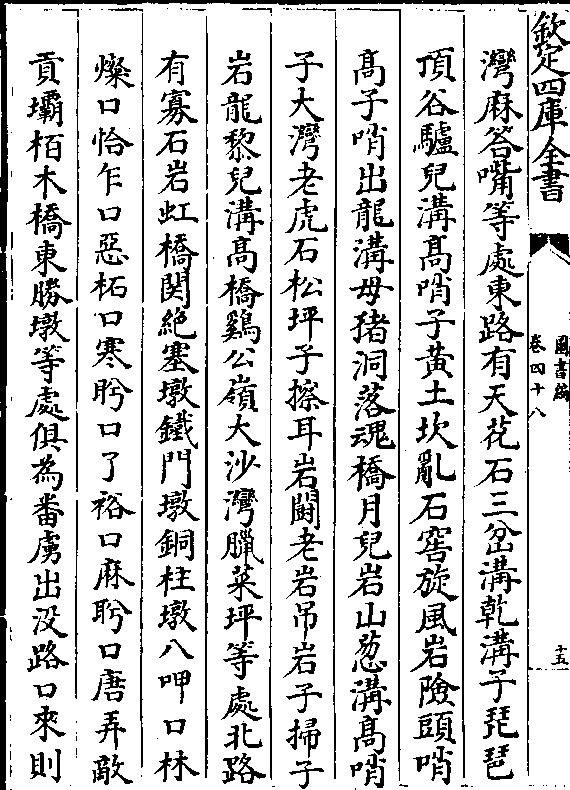 欽定四庫全書
圖書編
卷四十八
十五
灣麻答嘴等處東路有天花石三岔溝乾溝子琵琶
頂谷驢兒溝高哨子黃土坎亂石窖旋風岩險頭哨
髙子哨出龍溝母猪洞落魂橋月兒岩山葱溝髙哨
子大灣老虎石松坪子擦耳岩闘老岩吊岩子掃子
岩龍黎兒溝髙橋鷄公嶺大沙灣臘菜坪等處北路
有寡石岩虹橋関絶塞墩鐵門墩銅柱墩八呷口林
燦口恰乍口惡柘口寒盻口了裕口麻盻口唐弄敵
貢壩栢木橋東勝墩等處俱為畨虜出没路口來則